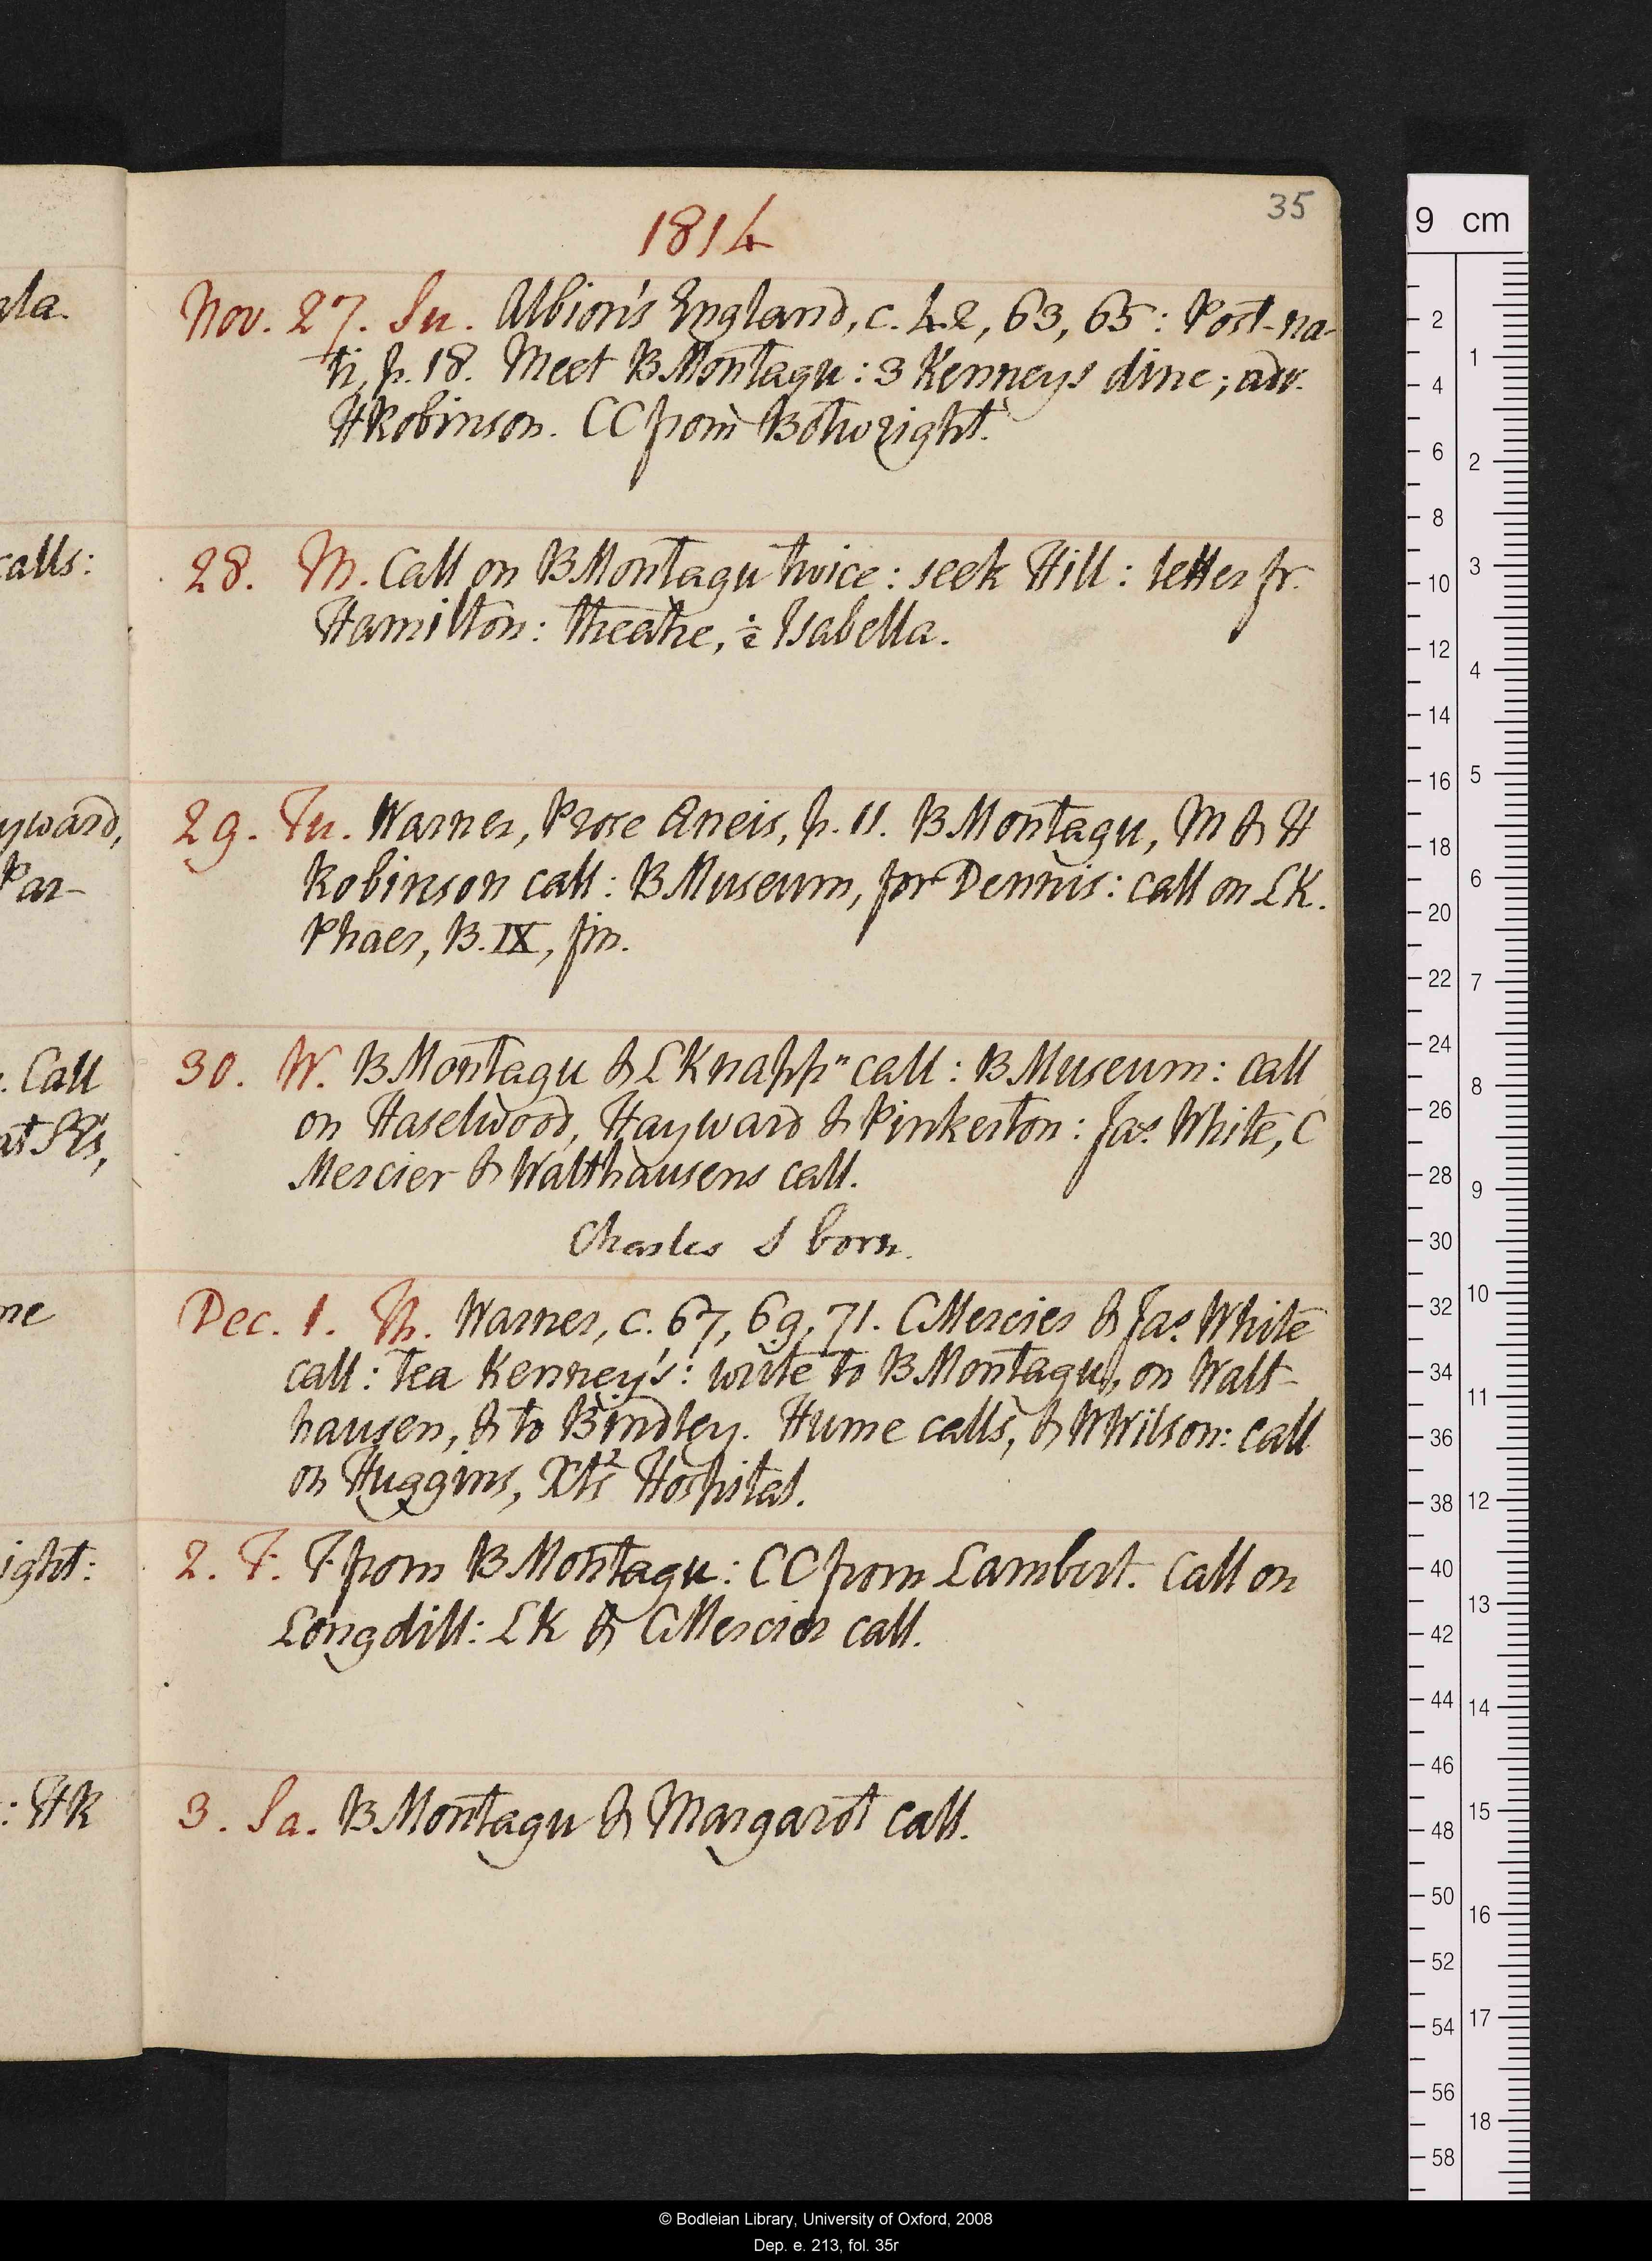 35
1814
Nov. 27. Su. Albion's England, c. 42, 63, 65: Post-na-
ti, p. 18. Meet B Montagu: 3 Kenneys dine; adv.
H Robinson. CC from Botwright.
28. M. Call on B Montagu twice: seek Hill: letter fr.
Hamilton: theatre, Isabella.
29. Tu. Warner, Prose Æneis, p. 11. B Montagu, M & H
Robinson call: B Museum, for Dennis: call on LK.
Phaer, B. IX, fin.
30. W. B Montagu & L Knapp call: B Museum: call
on Haselwood, Hayward & Pinkerton: Jas. White, C
Mercier & Walthausens call.
Charles S born.
Dec. 1. Th. Warner, c. 67, 69, 71. C Mercier & Jas. White
call: tea Kenney's: write to B Montagu, on Walt-
hausen, & to Bindley. Hume calls, & W Wilson: call
on Huggins, Xt's Hospital.
2. F. F from B Montagu: CC from Lambert. Call on
Longdill: LK & C Mercier call.
3. Sa. B Montagu & Margarot call.
ala.
calls:
yward,
Par-
. Call
ne
ight:
: HR
9 cm
2
4
6
8
10
12
14
16
18
20
22
24
26
28
30
32
34
36
38
40
42
44
46
48
50
52
54
56
58
1
2
3
4
5
6
7
8
9
10
11
12
13
14
15
16
17
18
© Bodleian Library, University of Oxford, 2008
Dep. e. 213, fol. 35r